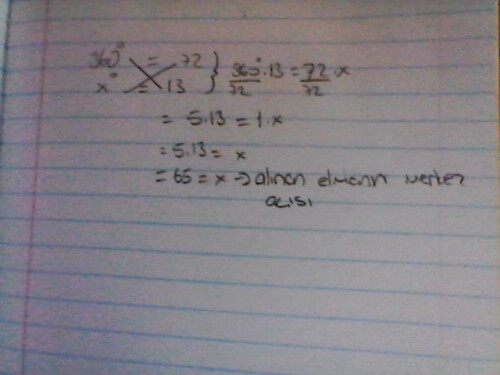 360° = 72 } 360°.13 = 72.x
x° = 13 72 72
= 5.13 = 1.x
= 5.13 = x
= 65 = x → alınan elmanın merkez
açısı